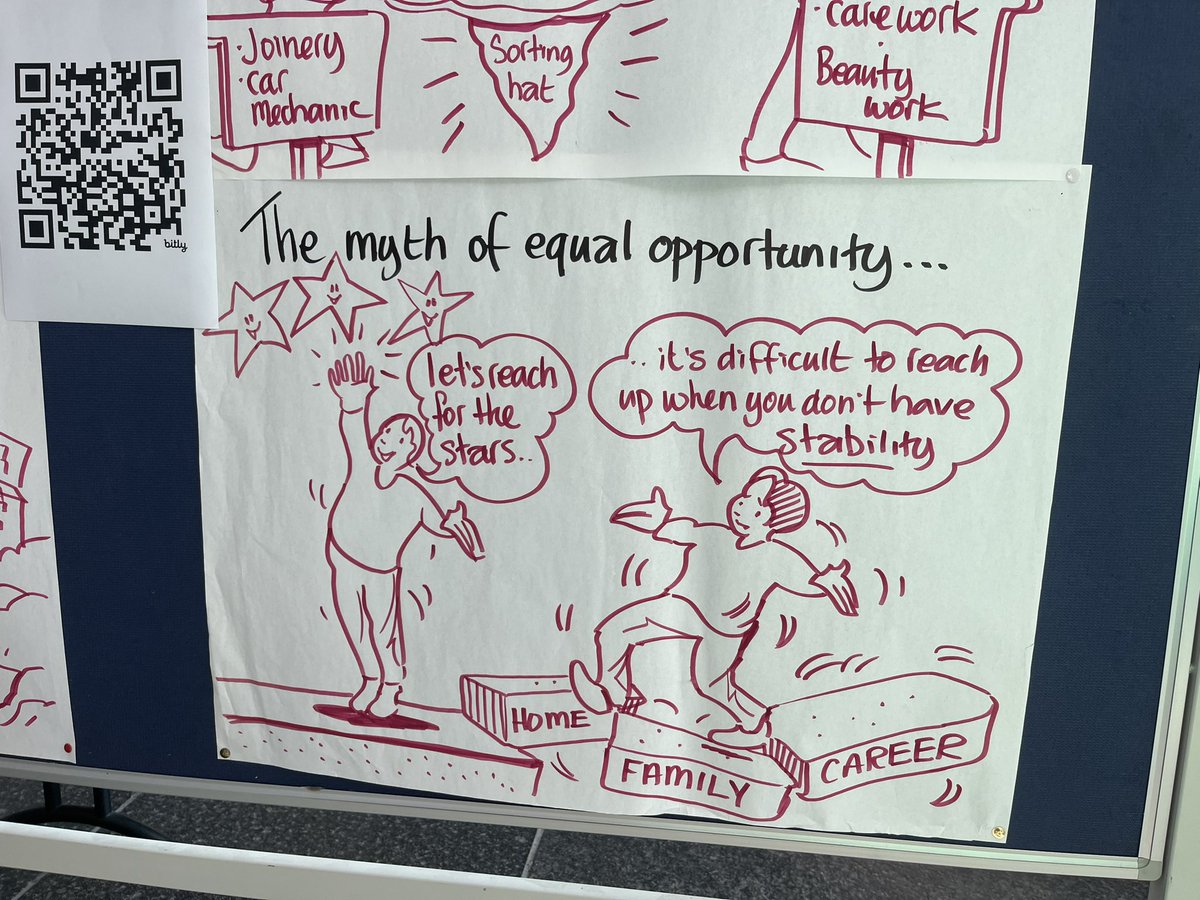 ·Joinery
·car
mechanic
Sorting
hat
·care work
·
Beauty
work
bitly
The myth of equal opportunity...
let's reach
for the
stars..
..it's difficult to reach
up when you don't have
stability
HOME
FAMILY
CAREER